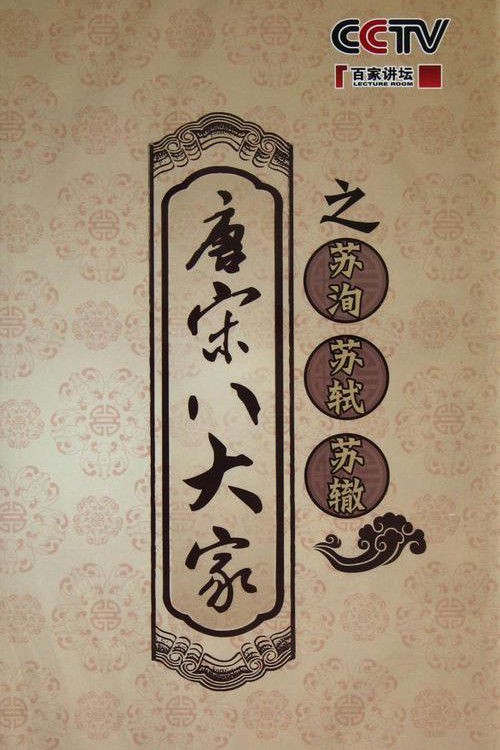 CCTV
百家讲坛
LECTURE ROOM
唐宋八大家
之
苏洵
苏轼
苏辙